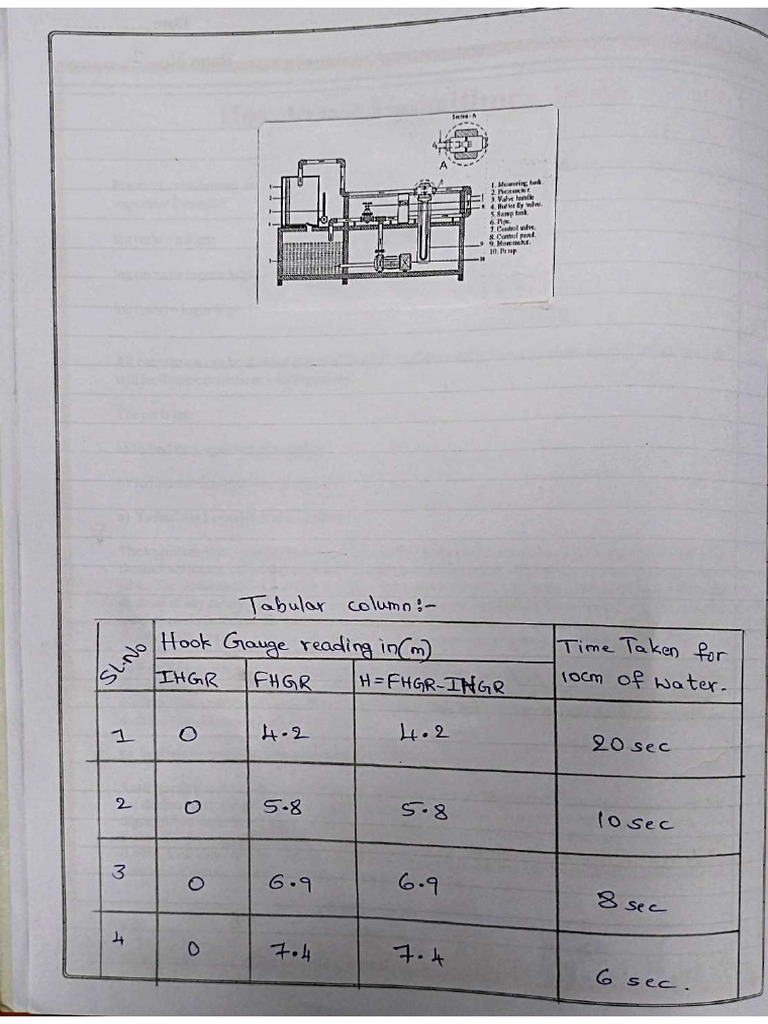 Section - A
A
1. Measuring tank.
2. Piezometer.
3. Valve handle
4. Butterfly valve.
5. Sump tank.
6. Pipe.
7. Control valve.
8. Control panel.
9. Monometer.
10. Pump.
1
2
3
4
5
9
10
Tabular column:-
Sl.No
Hook Gauge reading in(m)
Time Taken for
10cm of water.
IHGR FHGR H=FHGR-IHGR
1 0 4.2 4.2 20 sec
2 0 5.8 5.8 10 sec
3 0 6.9 6.9 8 sec
4 0 7.4 7.4 6 sec.